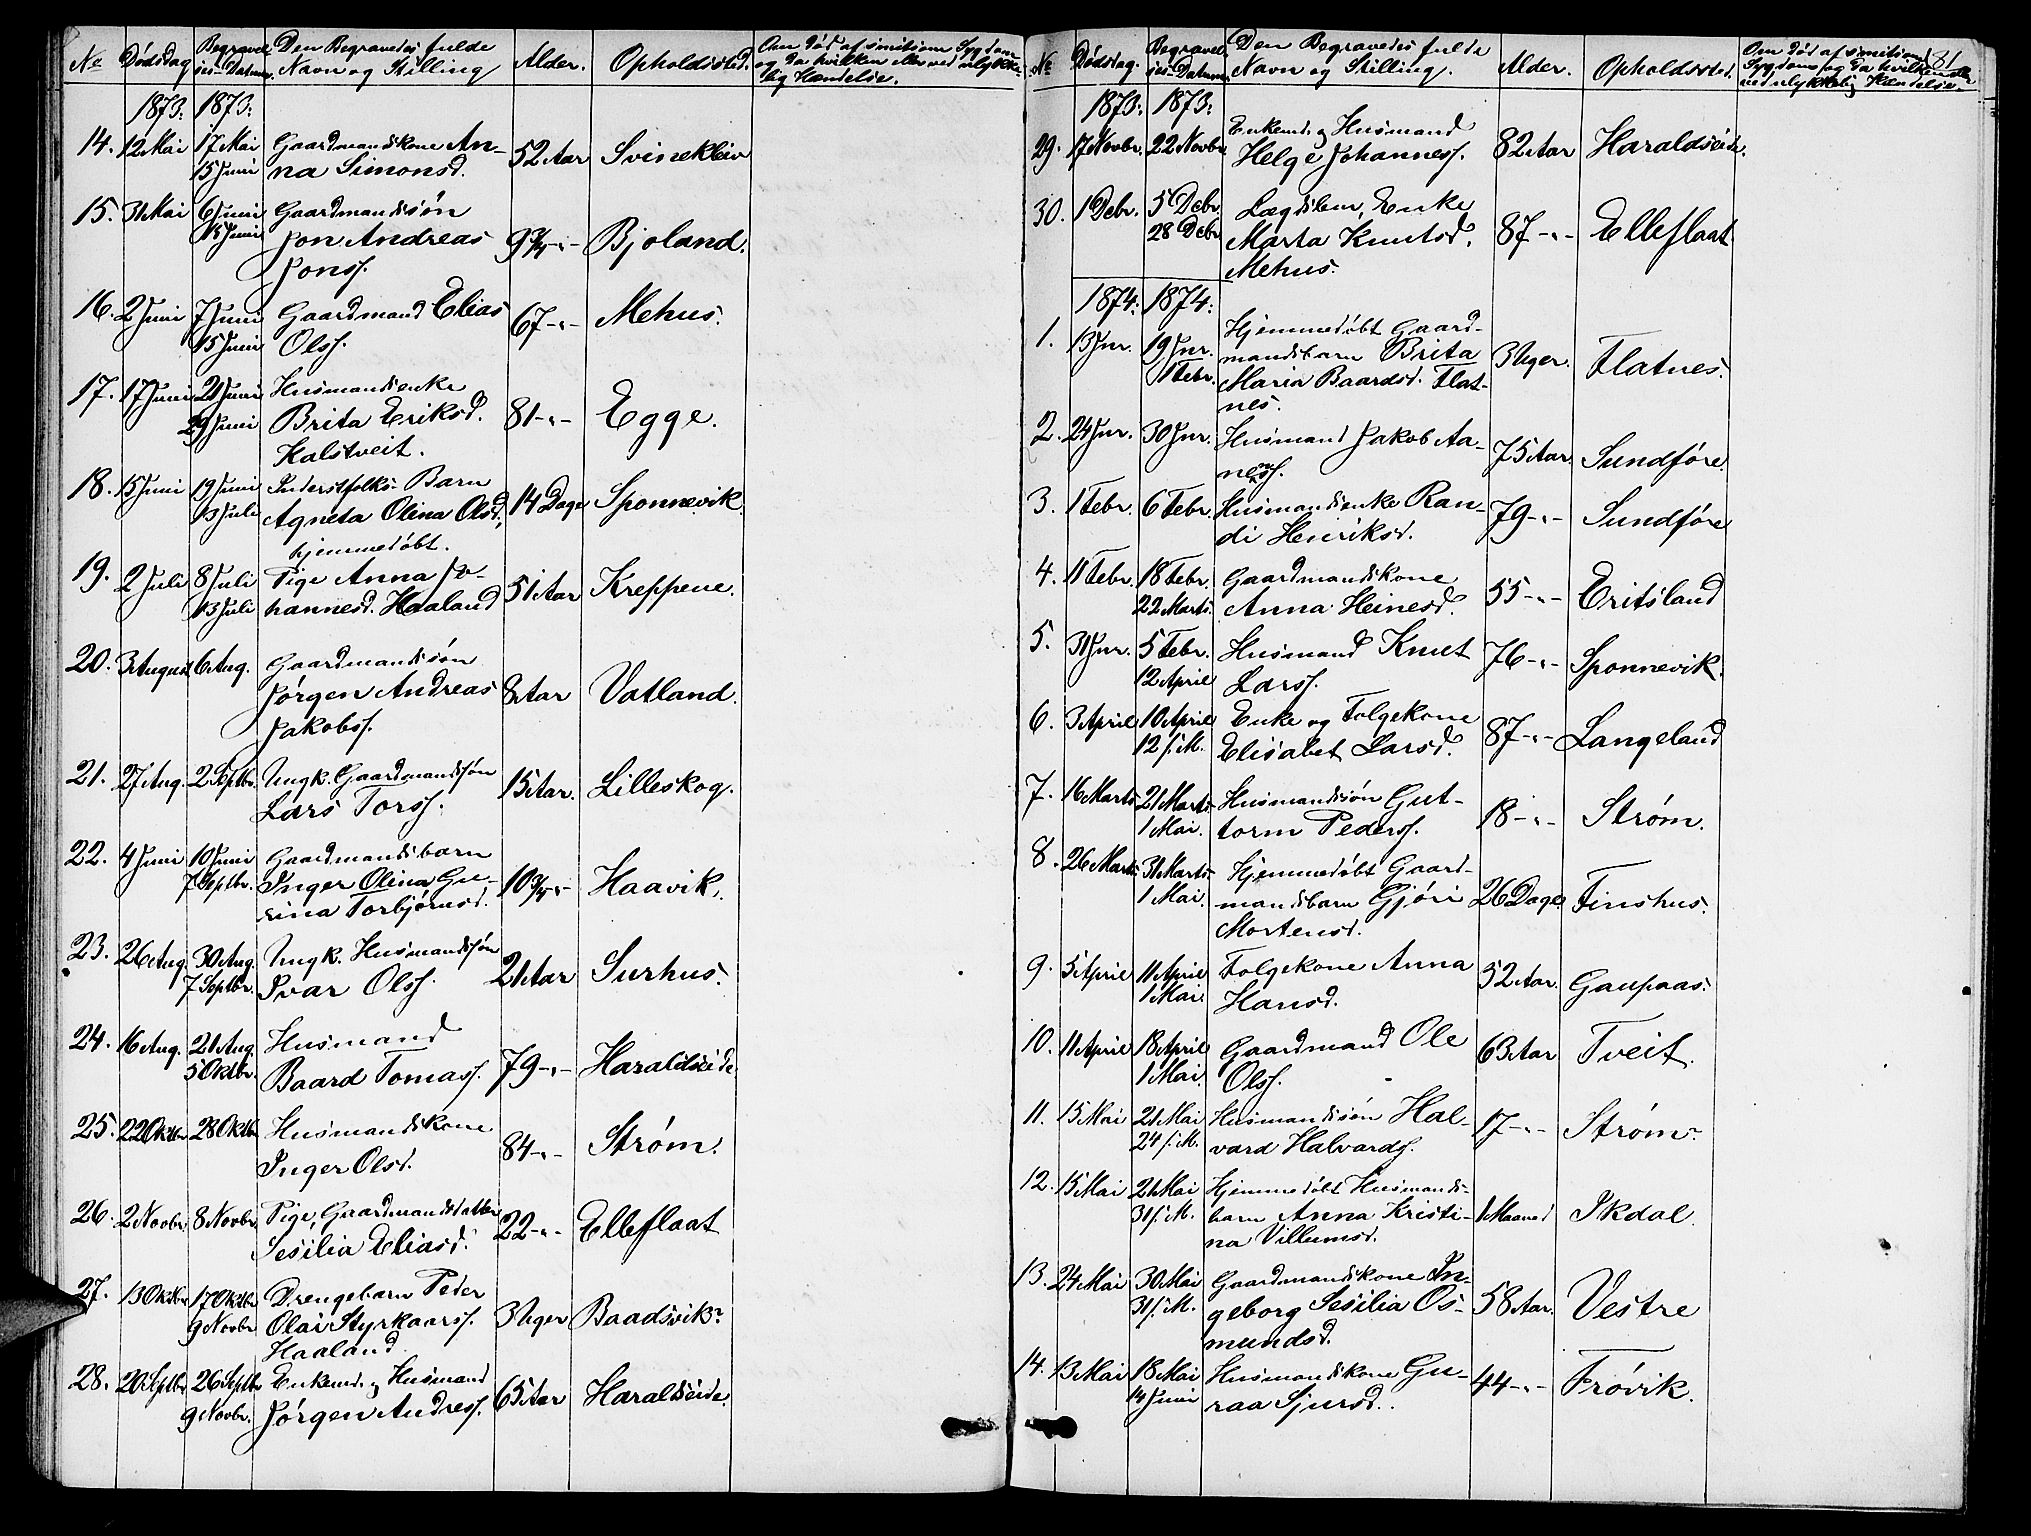 No Dødsdag Begravel- Den Begravedes fulde Alder. Opholdssted. Om Død af smitsom Sygdom
ses-Datum Navn og Stilling og da hvilken eller ved ulykke-
lig Hændelse.
1873: 1873:
14. 12 Mai 17 Mai Gaardmandskone An- 52 Aar Svinekleiv
15 Juni na Simonsd.
15. 31 Mai 6 Juni Gaardmandssøn
15 Juni Jon Andreas 9 3/4 -"- Bjoland.
Jonss.
16. 2 Juni 7 Juni Gaardmand Elias 67 -"- Mehus.
15 Juni Olss.
17. 17 Juni 21 Juni Husmandsenke
29 Juni Brita Eriksd. 81 -"- Egge.
Kalstveit.
18. 15 Juni 19 Juni Inderstfolks- Barn
13 Juli Agneta Olina Olsd, 14 Dage Sponnevik.
hjemmedøbt.
19. 2 Juli 8 Juli Pige Anna Jo-
13 Juli hannesd. Haaland 51 Aar Kreppene.
20. 3 August 6 Aug. Gaardmandssøn
Jørgen Andreas 8 Aar Vatland.
Jakobss.
21. 27 Aug. 2 Septbr. Ungk. Gaardmandssøn 15 Aar. Lilleskog.
Lars Torss.
22. 4 Juni 10 Juni Gaardmandsbarn
7 Septbr. Inger Olina Gu- 10 3/4 -"- Haavik.
rina Torbjørnsd.
23. 26 Aug. 30 Aug. Ungk. Husmandssøn 21 Aar Surhus.
7 Septbr. Ivar Olss.
24. 16 Aug. 21 Aug. Husmand
5 Oktbr. Baard Tomass. 79 -"- Haraldseide.
25. 22 Oktbr 28 Oktb Husmandskone 84 -"- Strøm.
Inger Olsd.
26. 2 Novbr 8 Novbr. Pige, Gaardmandsdatter 22 -"- Elleflaat
Sesilia Eliasd.
27. 13 Oktbr 17 Oktbr Drengebarn Peder
9 Novbr Olai Styrkaarss. 3 Uger Baadsvik.
Haaland
28. 20 Septbr 26 Septbr Enkemd. og Husmand 65 Aar Haraldseide.
9 Novbr. Jørgen Andress.
181
No Dødsdag. Begravel- Den Begravedes fulde Alder. Opholdssted. Om Død af smitsom
ses-Datum Navn og Stilling. Sygdom og da hvilken eller
ved ulykkelig Hændelse.
1873: 1873:
29. 17 Novbr. 22 Novbr Enkemd. og Husmand 82 Aar Haraldseide.
Helge Johanness.
30. 1 Debr. 5 Debr. Lægdslem, Enke
28 Debr Marta Knutsd. 87 -"- Elleflaat
Mehus.
1874: 1874:
1. 13 Jnr. 19 Jnr. Hjemmedøbt Gaard-
1 Febr. mandsbarn Brita 3 Uger. Flatnes.
Maria Baardsd. Flat-
nes.
2. 24 Jnr. 30 Jnr. Husmand Jakob Aa- 75 Aar. Sundføre.
ness.
3. 1 Febr. 6 Febr. Husmandsenke Ran- 79 -"- Sundføre
di Henriksd.
4. 11 Febr. 18 Febr. Gaardmandskone 55 -"- Eritsland
22 Marts Anna Heinesd.
5. 31 Jnr. 5 Febr. Husmand Knut 76 -"- Sponnevik.
12 April Larss.
6. 3 April 10 April Enke og Folgekone 87 -"- Langeland
12 s. M. Elisabet Larsd.
7. 16 Marts 21 Marts Husmandssøn Gut- 18 -"- Strøm.
1 Mai. torm Pederss.
8. 26 Marts 31 Marts Hjemmedøbt Gaard-
1 Mai. mandsbarn Gjøri 26 Dage Finshus.
Mortensd.
9. 5 April 11 April Folgekone Anna 52 Aar. Gaupaas.
1 Mai. Hansd.
10. 11 April 18 April Gaardmand Ole 63 Aar Tveit.
1 Mai. Olss.
11. 15 Mai 21 Mai Husmandssøn Hal- 17 -"- Strøm.
24 s. M. vard Halvards.
12. 15 Mai 21 Mai Hjemmedøbt Husmands-
31 s. M. barn Anna Kristi- 1 Maaned Ikdal.
na Villumsd.
13. 24 Mai 30 Mai Gaardmandskone In-
31 s. M. geborg Sesilia Os- 58 Aar. Vestre
mundsd.
14. 13 Mai 18 Mai Husmandskone Gu- 44 -"- Frøvik.
14 Juni raa Sjursd.